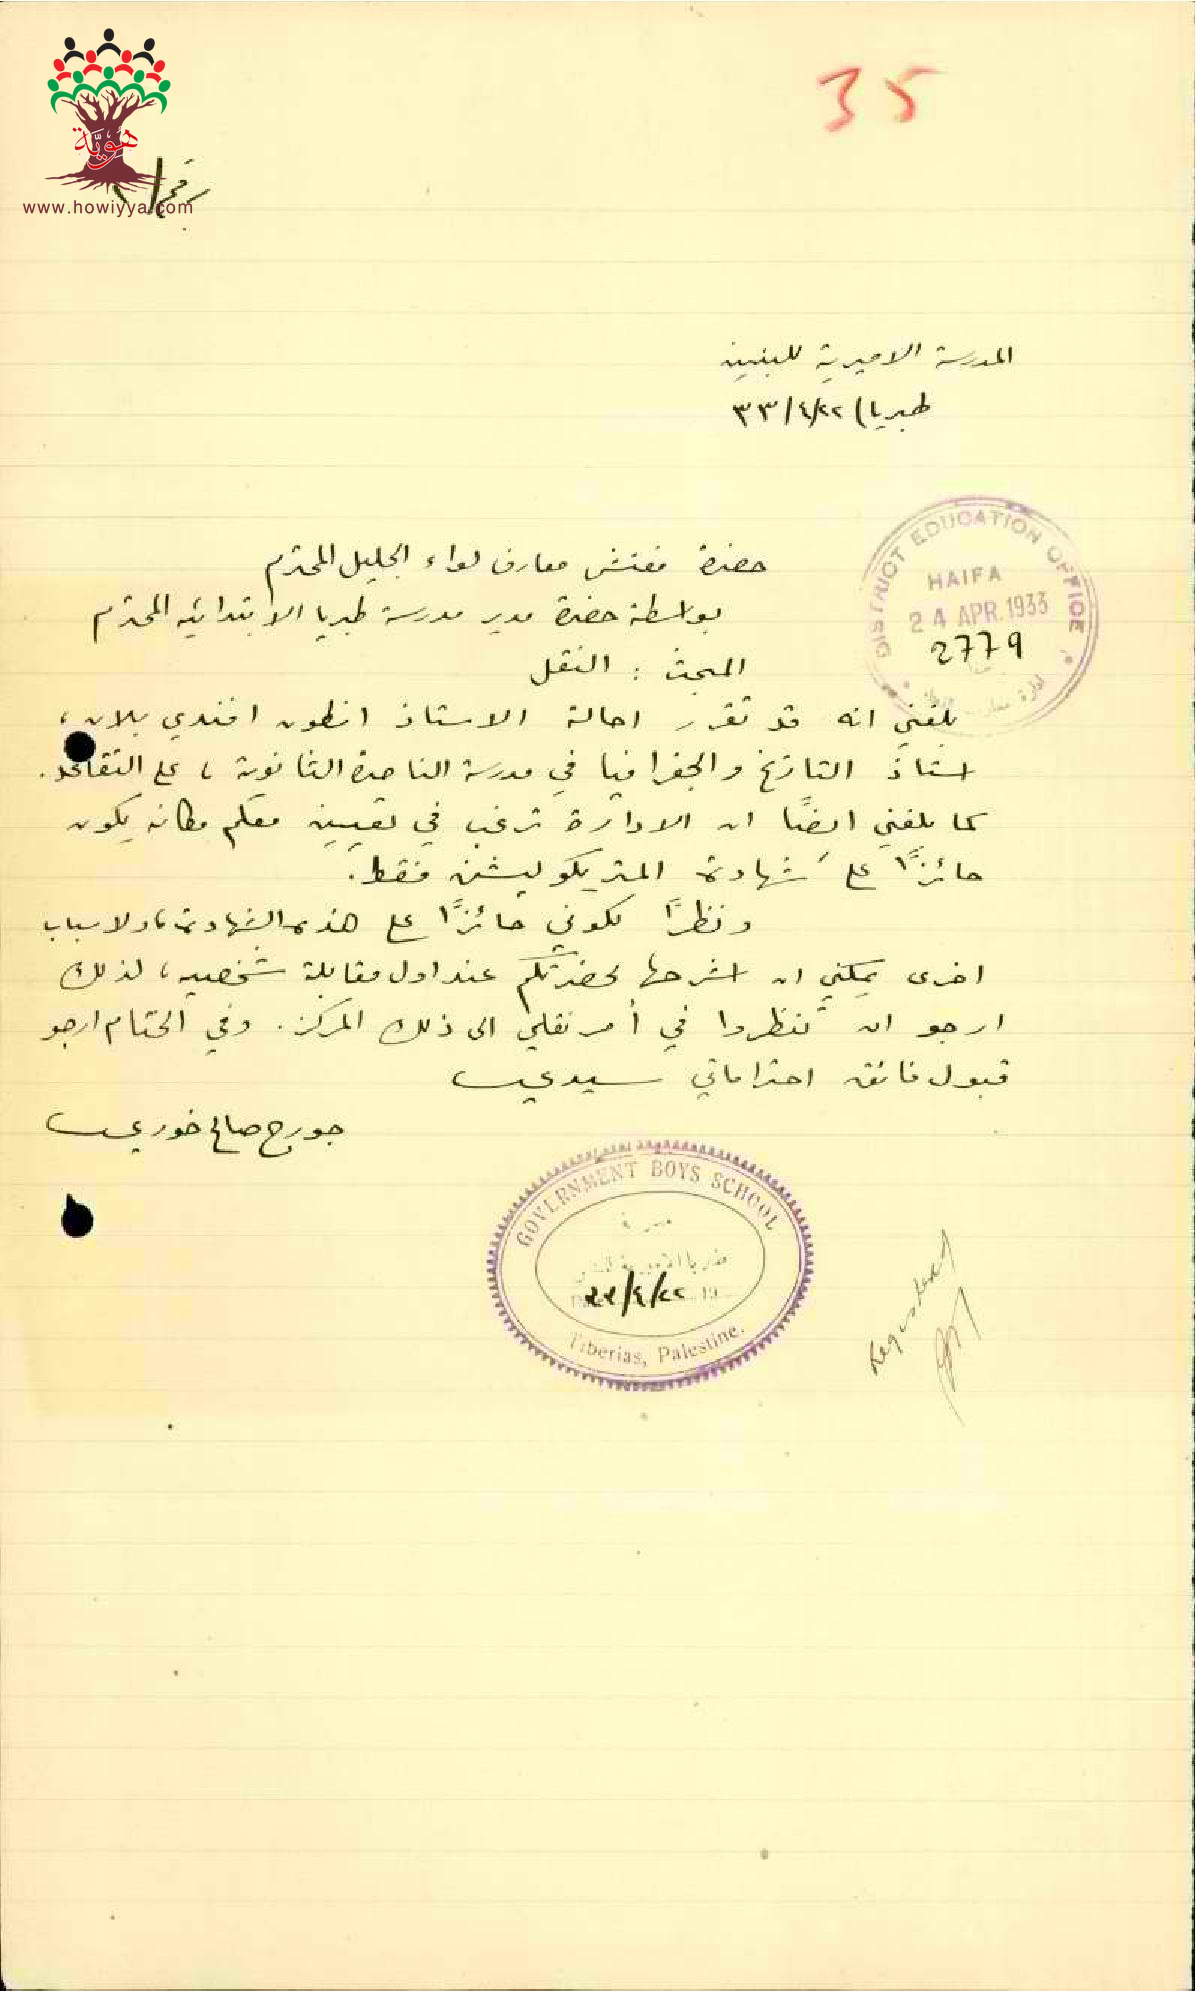 35
هوية
www.howiyya.com
رقم
المدرسة الاميرية للبنين
طبريا) ٢٢/٤/٣٣
DISTRICT EDUCATION OFFICE
HAIFA
24 APR. 1933
2779
حضرة مفتش معارف لواء الجليل المحترم
بواسطة حضرة مدير مدرسة طبريا الابتدائيه المحترم
المبحث : النقل
بلغني انه قد تقرر احالة الاستاذ انطون افندي بلان،
استاذ التاريخ والجغرافيا في مدرسة الناصرة الثانوية، على التقاعد.
كما بلغني ايضًا ان الادارة ترغب في تعيين معلم مكانه يكون
حائزًا على شهادة المتريكوليشن فقط.
ونظرًا لكوني حائزًا على هذه الشهادة، ولاسباب
اخرى يمكنني ان اشرحها لحضرتكم عند اول مقابلة شخصيه، لذلك
ارجو ان تنظروا في أمر نقلي الى ذلك المركز. وفي الختام ارجو
قبول فائق احتراماتي سيدي
جورج صالح خوري
GOVERNMENT BOYS SCHOOL
٢٢/٤/٣٣
19
Tiberias, Palestine.
Registered